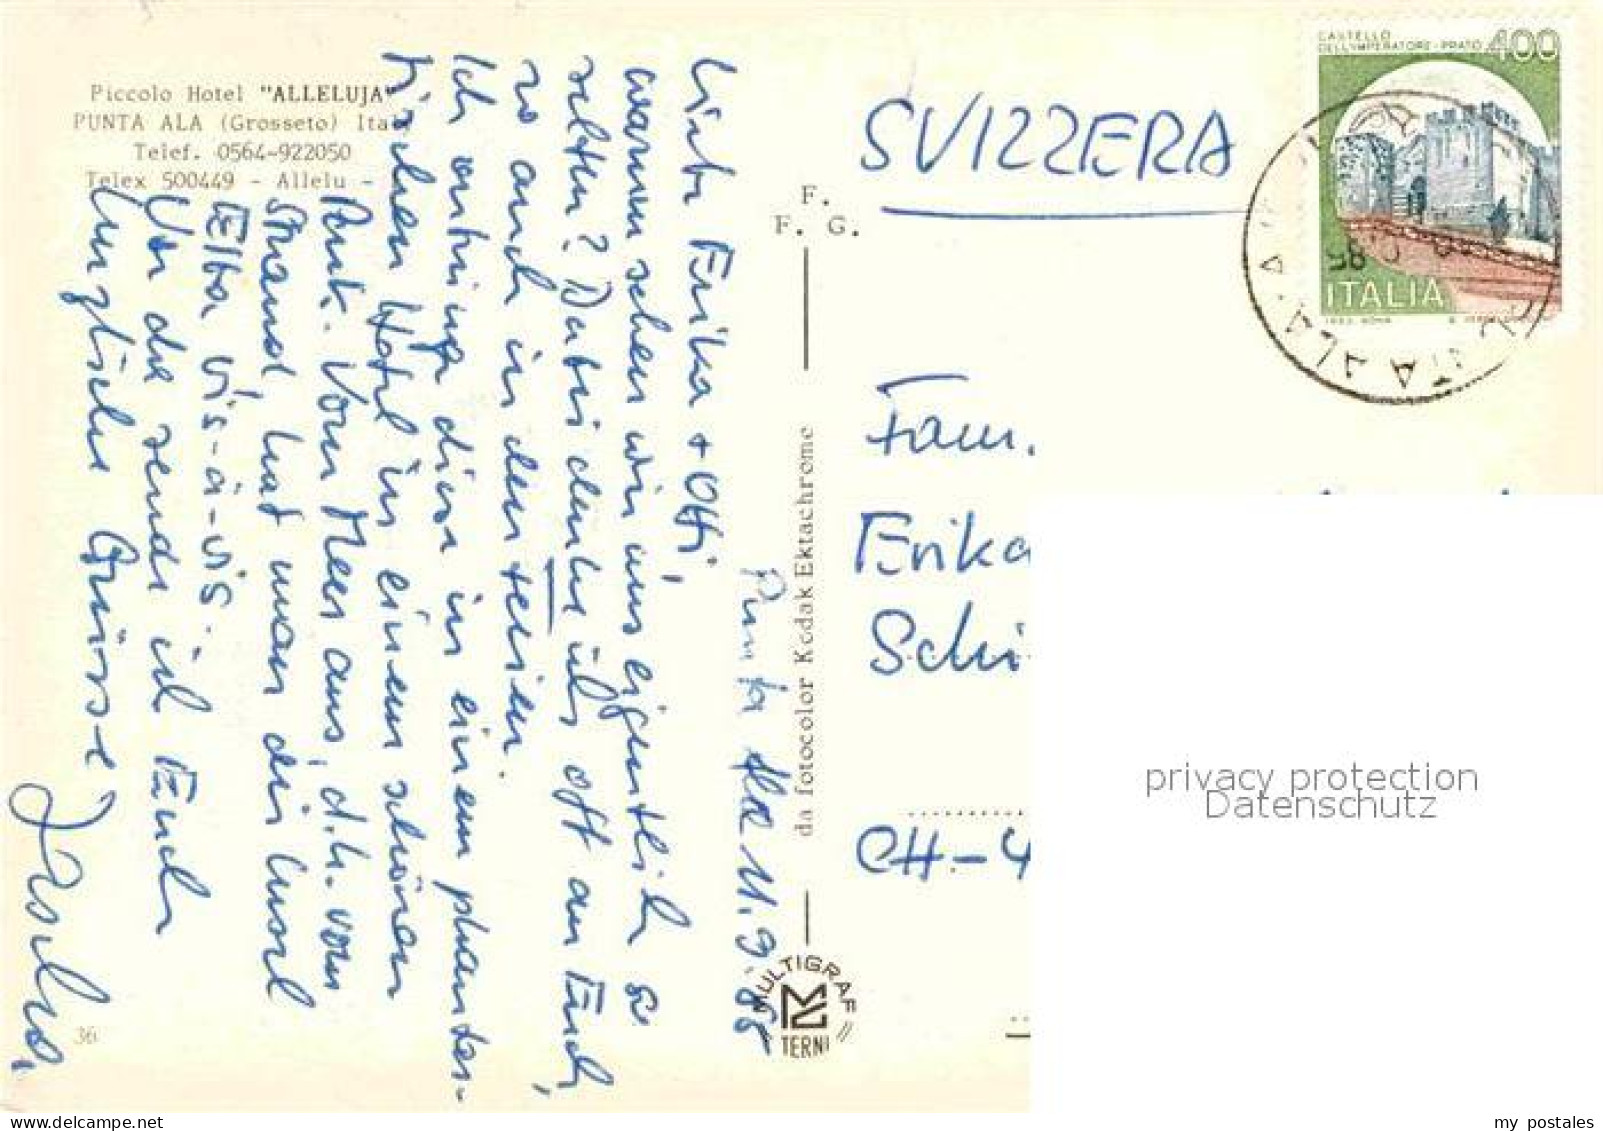 Piccolo Hotel "ALLELUJA"
PUNTA ALA (Grosseto) Ital
Telef. 0564-922050
Telex 500449 - Allelu -
Punta Ala 11.9.85
Liebe Erika + Otti,
warum sehen wir uns eigentlich so
selten? Dabei denke ich oft an Euch,
so auch in den Ferien.
Ich verbringe diese in einem phantas-
tischen Hotel in einem schönen
Park. Vom Meer aus, d.h. vom
Strand, hat man die Insel
Elba vis-à-vis.
Von da sende ich Euch
herzliche Grüsse
36
F.
F. G.
da fotocolor Kodak Ektachrome
MULTIGRAF
TERNI
CASTELLO
DELL'IMPERATORE - PRATO 400
ITALIA
PUNTA ALA
SVIZZERA
Fam.
Erika
Schi
CH-4
privacy protection
Datenschutz
my postales